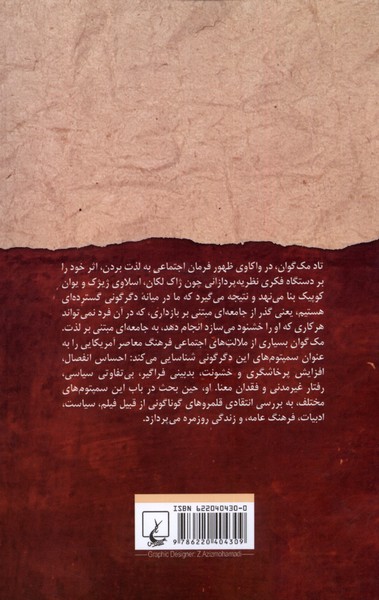 تاد مک‌گوان، در واکاوی ظهور فرمان اجتماعی به لذت بردن، اثر خود را
بر دستگاه فکری نظریه‌پردازانی چون ژاک لکان، اسلاوی ژیژک و یوان
کوپیک بنا می‌نهد و نتیجه می‌گیرد که ما در میانهٔ دگرگونی گسترده‌ای
هستیم، یعنی گذر از جامعه‌ای مبتنی بر بازداری، که در آن فرد نمی‌تواند
هرکاری که او را خشنود می‌سازد انجام دهد، به جامعه‌ای مبتنی بر لذت.
مک‌گوان بسیاری از ملالت‌های اجتماعی فرهنگ معاصر آمریکایی را به
عنوان سمپتوم‌های این دگرگونی شناسایی می‌کند: احساس انفصال،
افزایش پرخاشگری و خشونت، بدبینی فراگیر، بی‌تفاوتی سیاسی،
رفتار غیرمدنی و فقدان معنا. او، حین بحث در باب این سمپتوم‌های
مختلف، به بررسی انتقادی قلمروهای گوناگونی از قبیل فیلم، سیاست،
ادبیات، فرهنگ عامه، و زندگی روزمره می‌پردازد.
ISBN 622040430-0
9 786220 404309
Graphic Designer: Z.Azizmohamadi